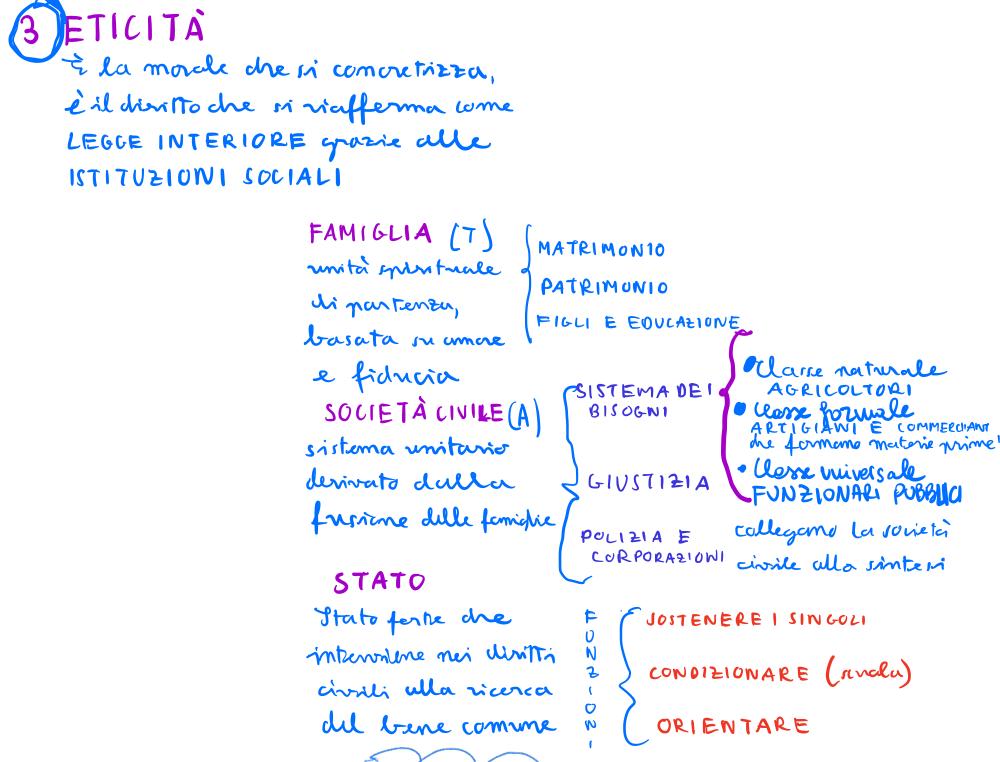 3 ETICITÀ
È la morale che si concretizza,
è il diritto che si riafferma come
LEGGE INTERIORE grazie alle
ISTITUZIONI SOCIALI
FAMIGLIA (T)
unità spirituale
di partenza,
basata su amore
e fiducia
MATRIMONIO
PATRIMONIO
FIGLI E EDUCAZIONE
SOCIETÀ CIVILE (A)
sistema unitario
derivato dalla
fusione delle famiglie
SISTEMA DEI
BISOGNI
• Classe naturale
AGRICOLTORI
• Classe formale
ARTIGIANI E COMMERCIANTI
che formano materie prime
• Classe universale
FUNZIONARI PUBBLICI
GIUSTIZIA
POLIZIA E
CORPORAZIONI
collegano la società
civile alla sintesi
STATO
Stato forte che
interviene nei diritti
civili alla ricerca
del bene comune
FUNZIONI
SOSTENERE I SINGOLI
CONDIZIONARE (scuola)
ORIENTARE